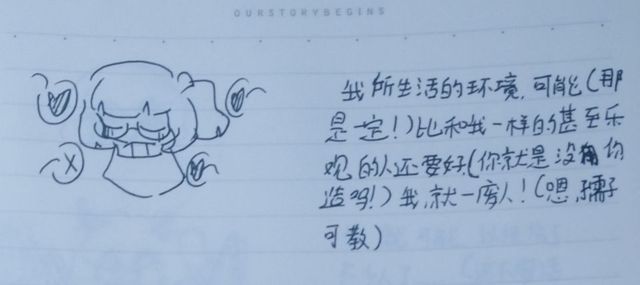 OURSTORYBEGINS
我所生活的环境,可能(那
是一定!)比和我一样的甚至乐
观的人还要好(你就是没有为
造吗!)我,就一废人!(嗯,孺子
可教)